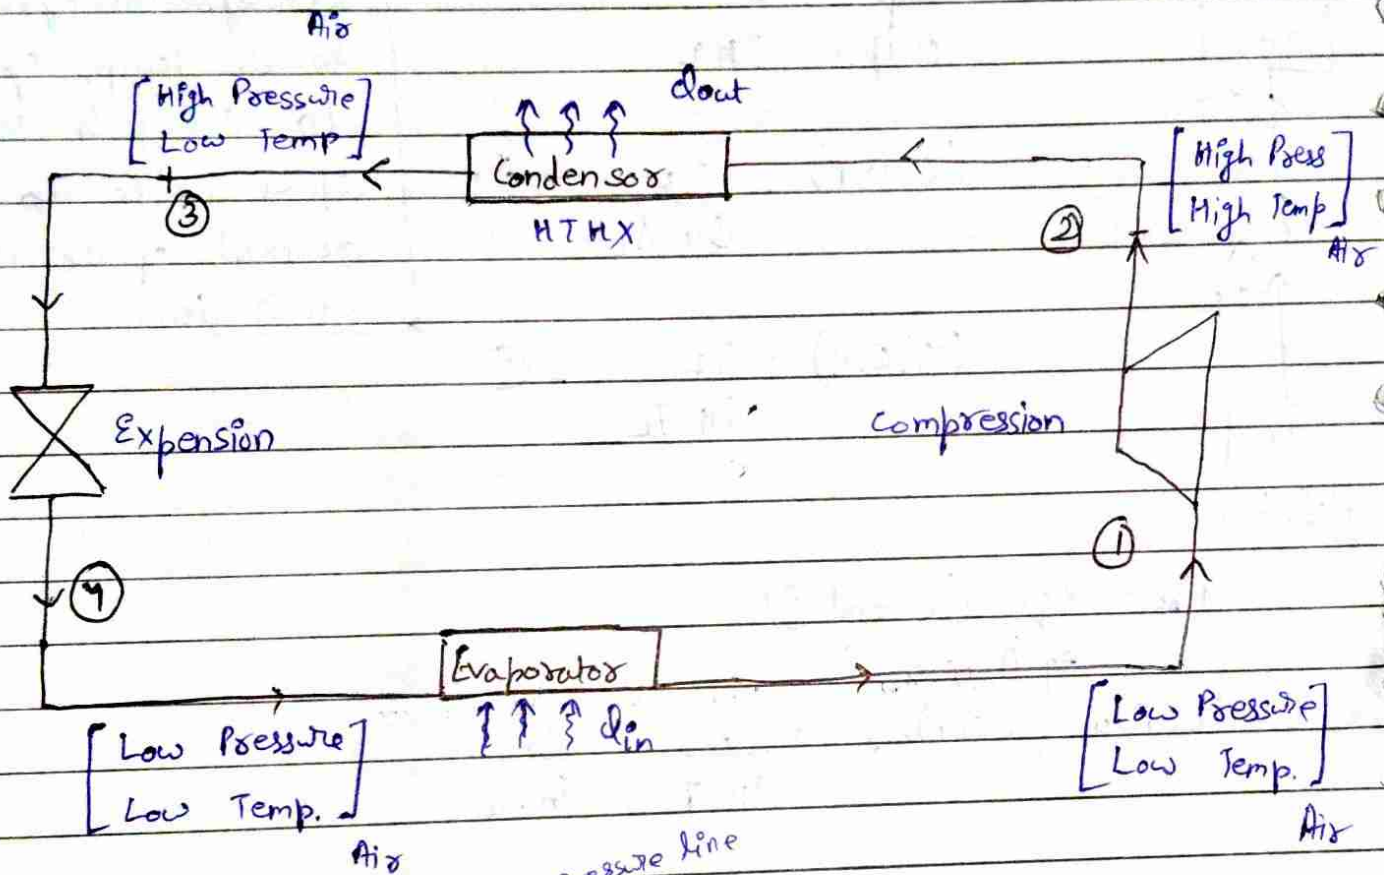 Air
[High Pressure
Low Temp]
Qout
Condensor
HTHX
[High Press
High Temp]
Air
③
②
Expension
Compression
①
④
Evaporator
Qin
[Low Pressure
Low Temp.]
Air
[Low Pressure
Low Temp.]
Air
line